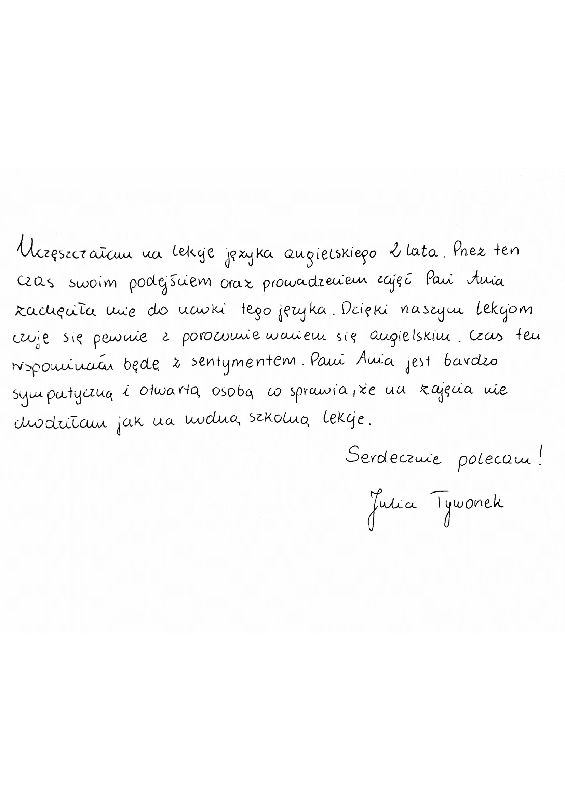 Uczęszczałam na lekcje języka angielskiego 2 lata. Przez ten
czas swoim podejściem oraz prowadzeniem zajęć Pani Ania
zachęciła mnie do nauki tego języka. Dzięki naszym lekcjom
czuję się pewnie z porozumiewaniem się angielskim. Czas ten
wspominać będę z sentymentem. Pani Ania jest bardzo
sympatyczną i otwartą osobą co sprawia, że na zajęcia nie
chodziłam jak na nudną szkolną lekcje.
Serdecznie polecam!
Julia Tywonek